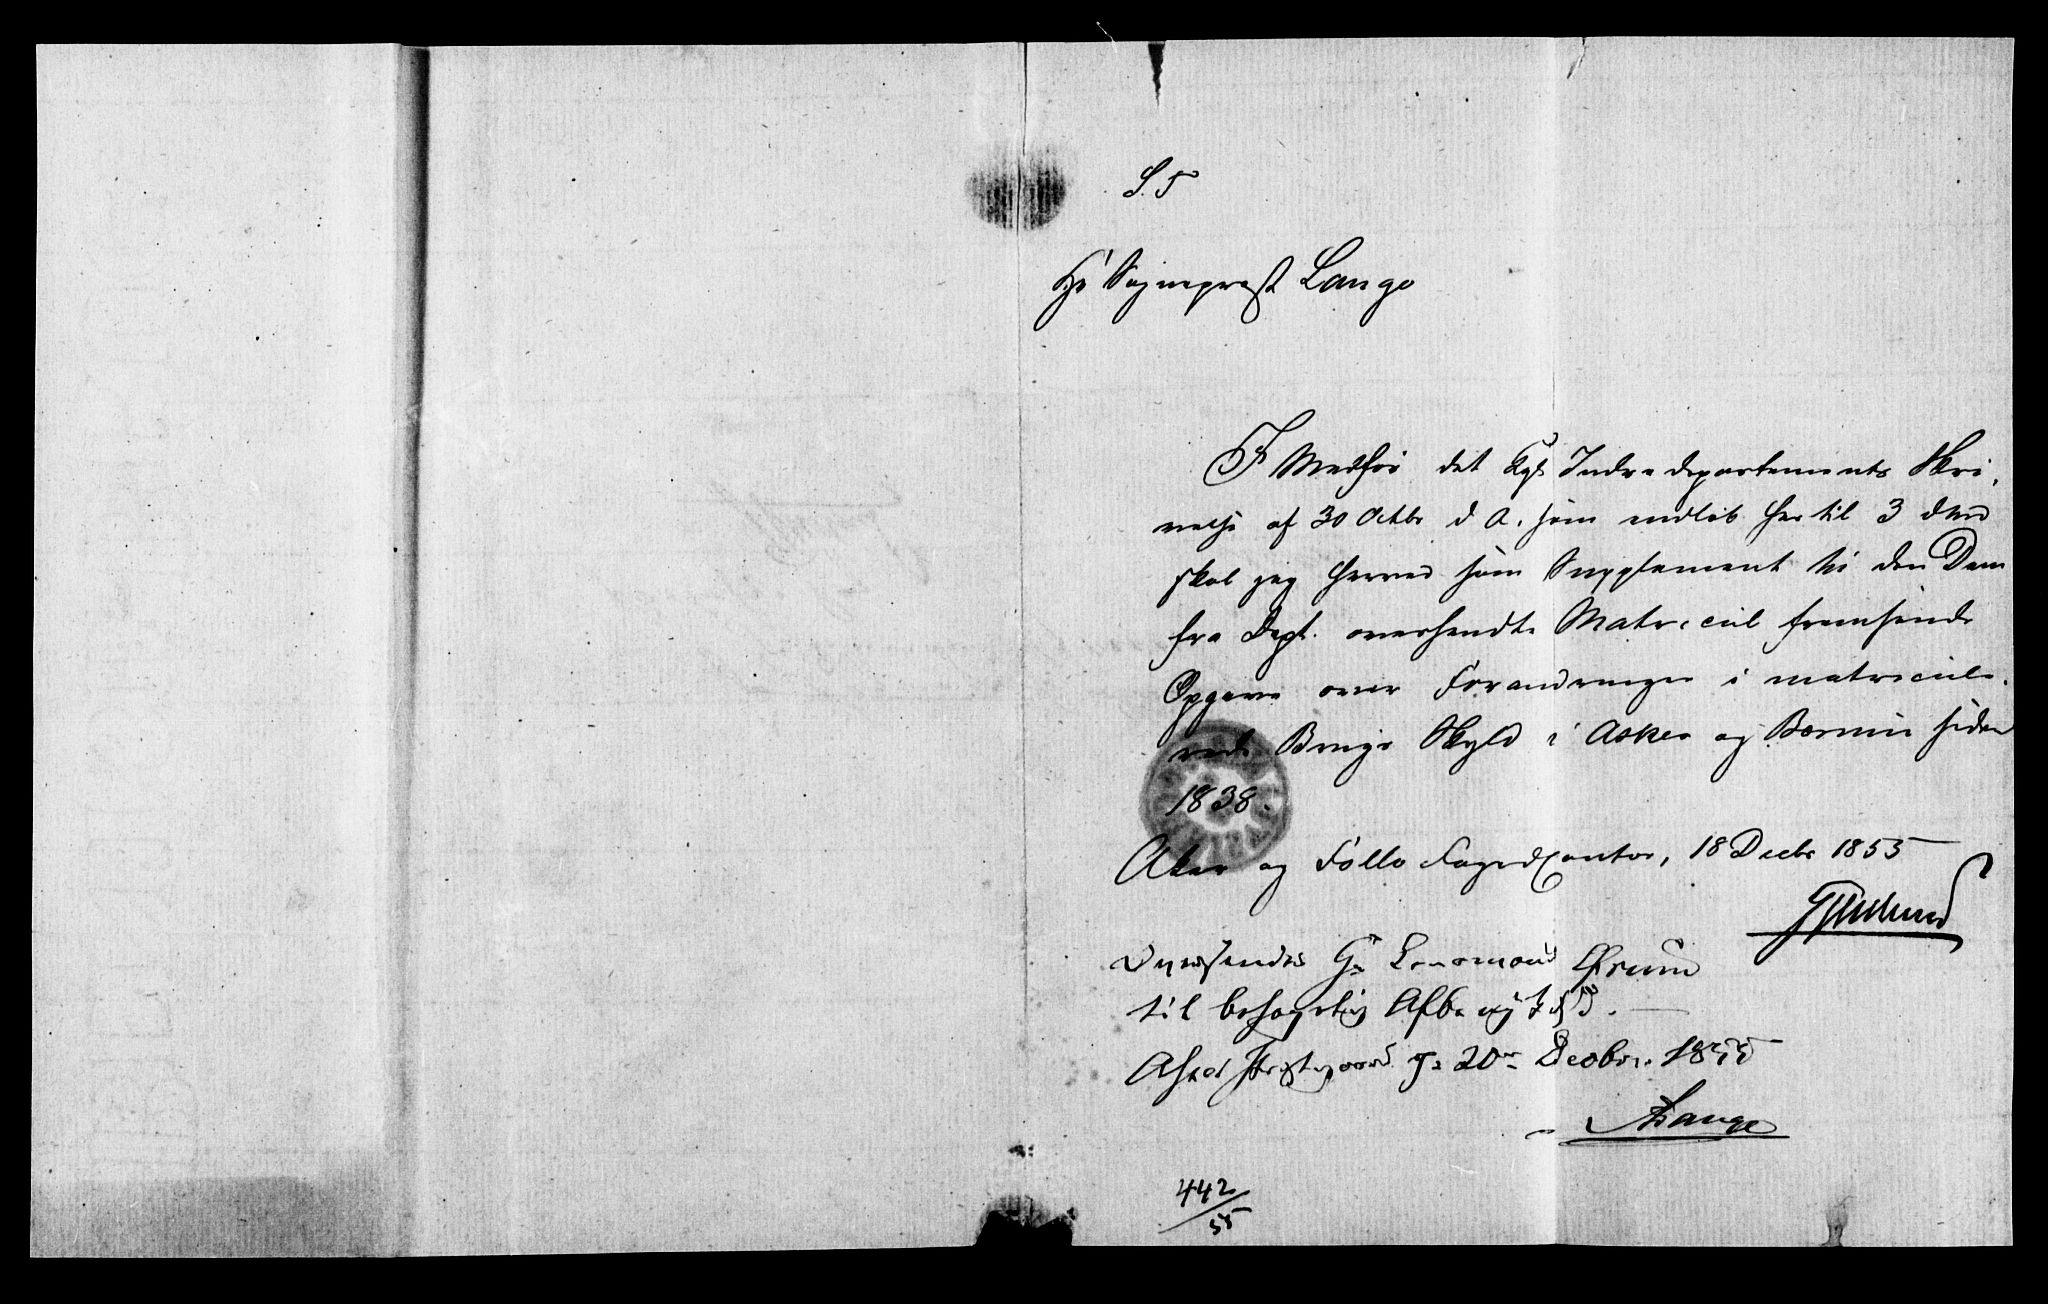 S. T
Hr Sognepræst Lange
I Medfør det Kgl Indredepartements Skri,
velse af 30 Octbr d A. som indløb hertil 3 dms
skal jeg herved som Supplement til den Dem
fra Dept. oversendte Matricul fremsende
Opgave over Forandringer i matricule-
rede Brugs Skyld i Asker og Bærum siden
1838.
Aker og Follo Fogedcontor, 18 Decbr 1855
Oversendes Hr Lensmand Ørum
til behagelig
Asker Præstegaard d. 20de Decbr. 1855
Lange
442/55